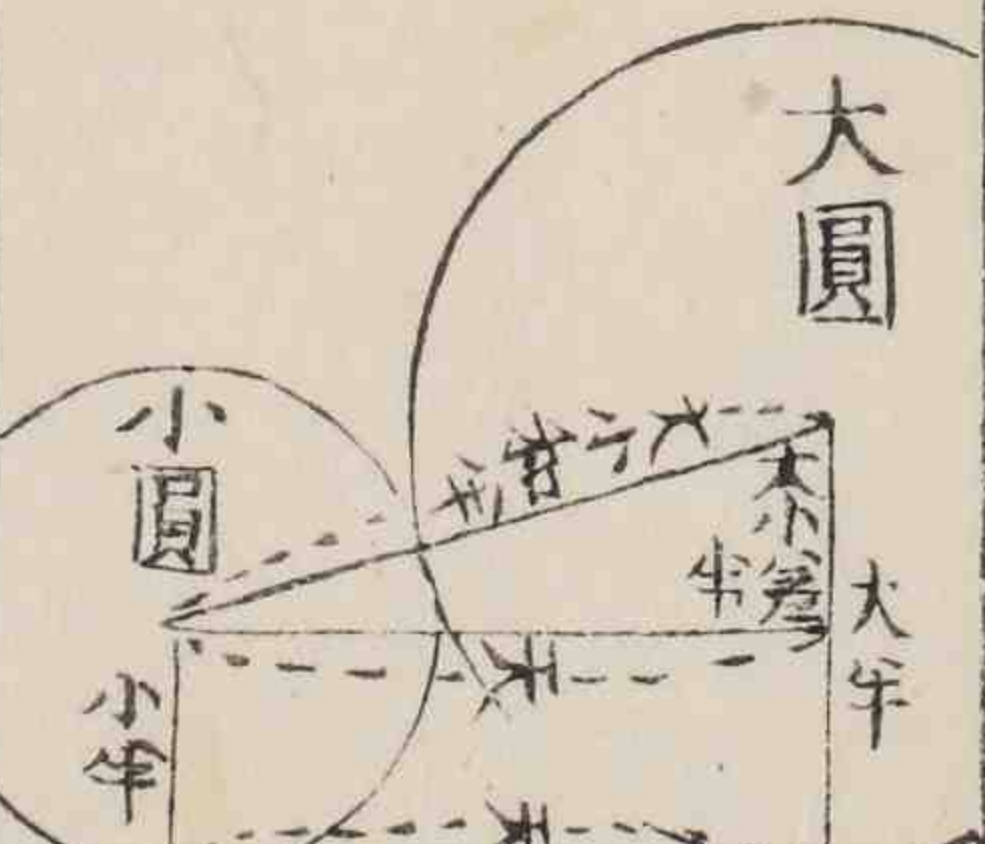 大圓
小圓
大小半
大小差
半
大半
小半
天
天